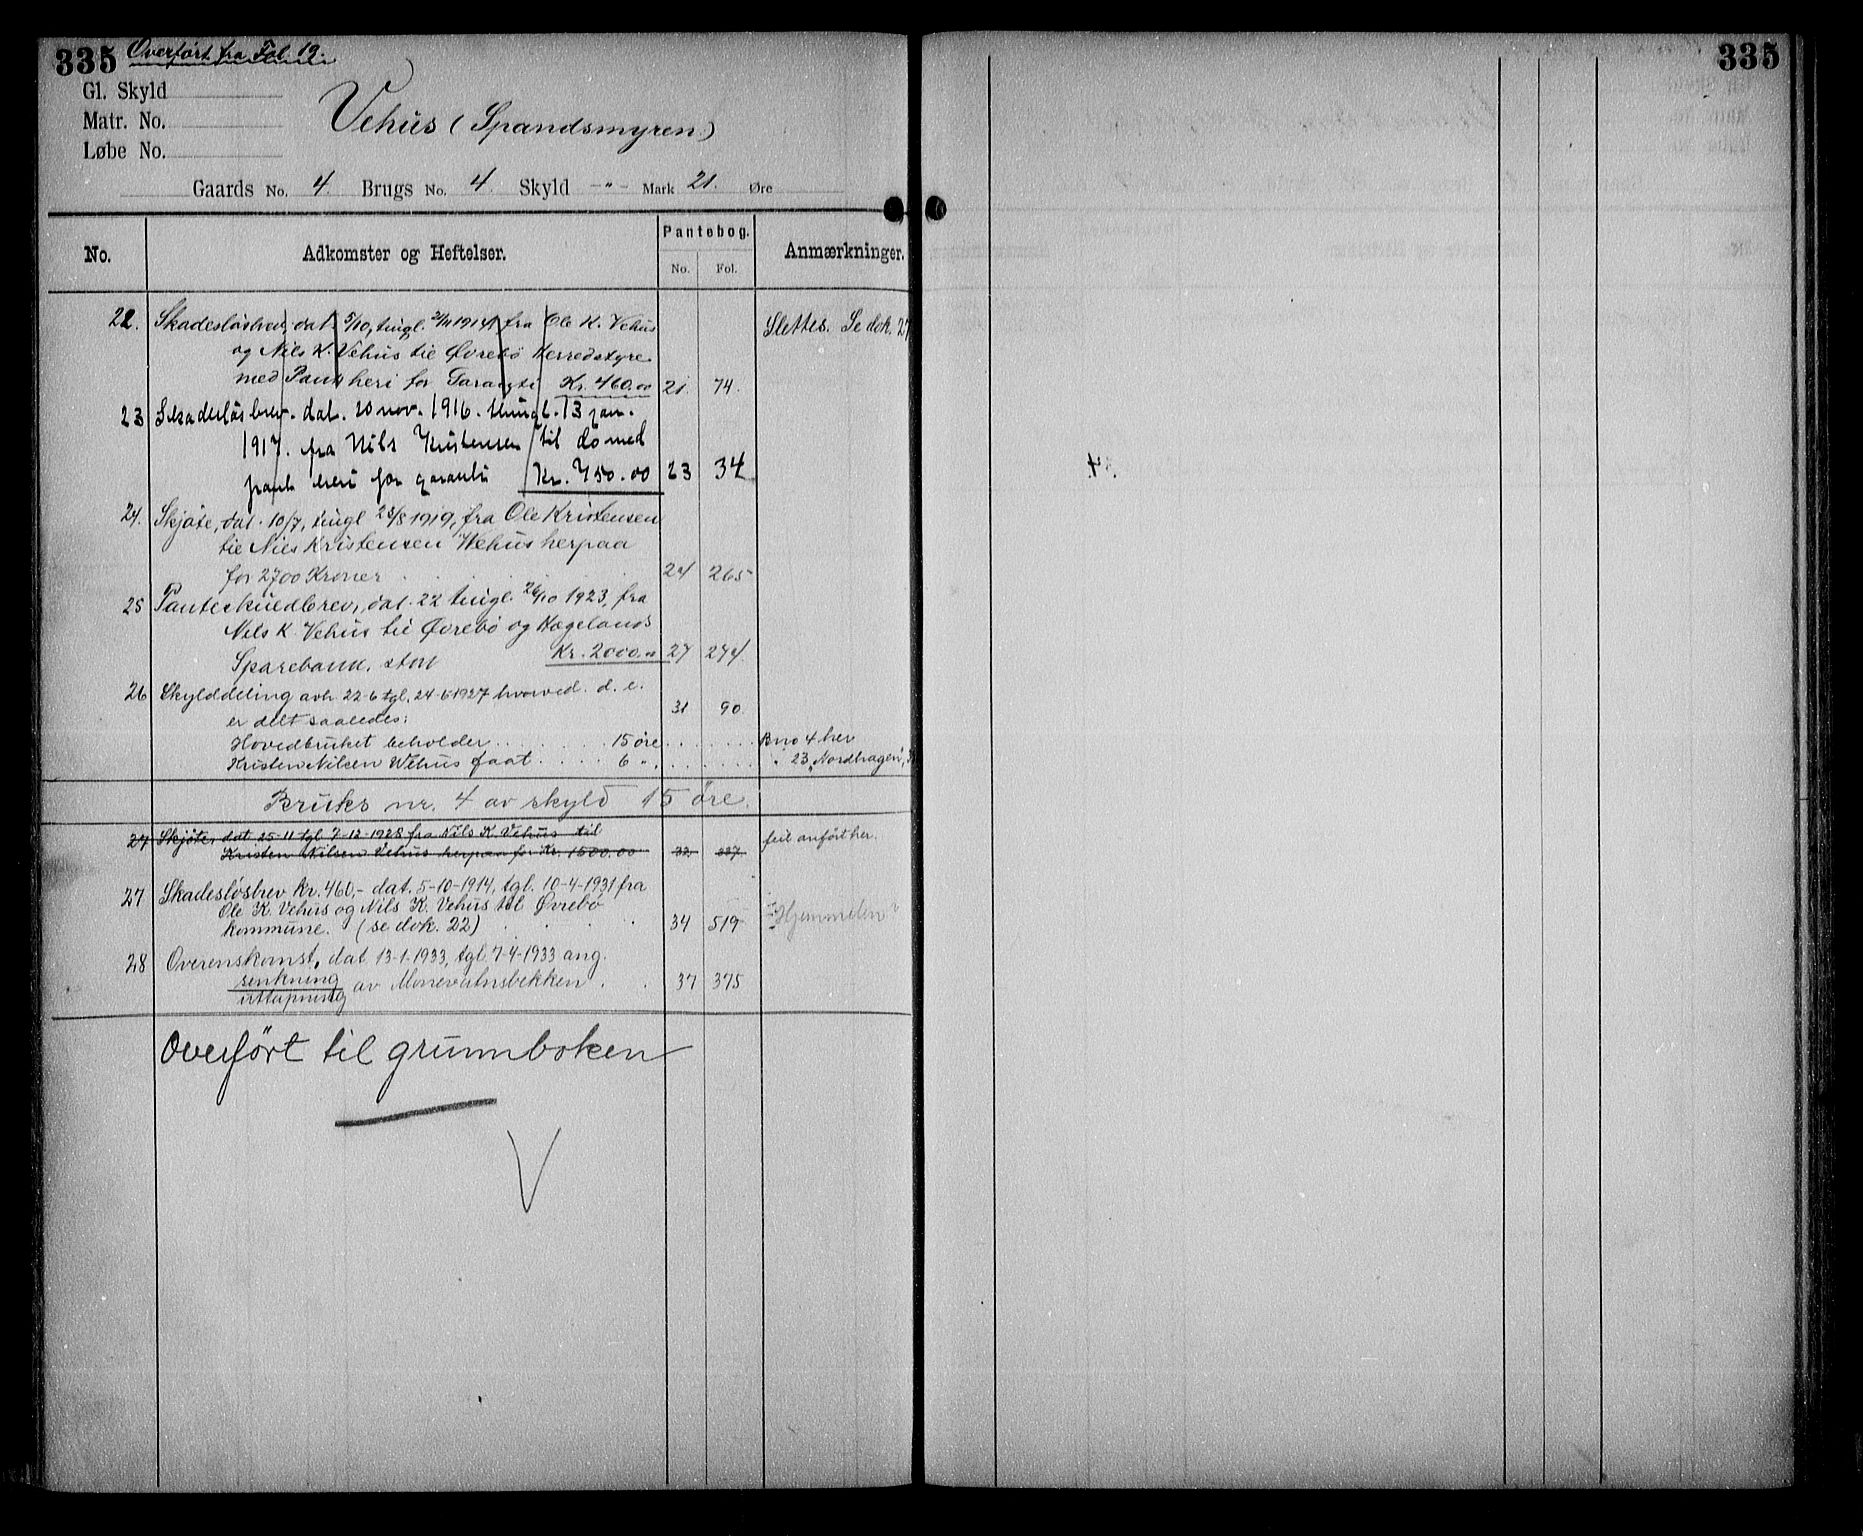 335 Overført fra Fol. 19. 335
Gl. Skyld
Matr. No.
Løbe No.
Vehus (Spandsmyren)
Gaards No. 4 Brugs No. 4. Skyld -"- Mark 21. Øre
No. Adkomster og Heftelser. Pantebog. No. Fol. Anmærkninger.
22. Skadesløsbrev, dat. 5/10, tingl. 1914 fra Ole K. Vehus Slettes. Se dok. 27
og Nils K. Vehus til Øvrebö Herredstyre
med Pant heri for Garanti Kr. 460.00 21 74.
23 Skadesløsbrev. dat. 20 nov. 1916. thingl. 13 jan.
1917. fra Nils Kristensen til do med
pant heri for garanti Kr. 750.00 23 34
24. Skjøte, dat. 10/7, tingl 28/8 1919, fra Ole Kristensen
til Nils Kristensen Wehus herpaa
for 2700 Kroner 24 265
25 Panteskuldbrev, dat. 22 tingl. 26/10 1923, fra
Nils K. Vehus til Øvrebö og Hægelands
Sparebank, stort Kr. 2000.00 27 274.
26 Skylddeling avh 22-6 tgl. 24-6 1927 hvorved d. e.
er delt saaledes: 31 90
Hovedbruket beholder . . . . 15 øre . . . . Bno 4 her
Kristen Nilsen Wehus faat . . . . 6 " . . . . " 23 „Nordhagen",
Bruks nr. 4 av skyld 15 øre.
27 Skjøte, dat 25-11 tgl 7-12-1928 fra Nils K. Vehus til feil anført her.
Kristen Nilsen Vehus herpaa for Kr. 1500.00 32 337
27 Skadesløsbrev kr. 460,- dat. 5-10-1914, tgl. 10-4-1931 fra
Ole K. Vehus og Nils K. Vehus til Øvrebö
kommune. (se dok. 22) 34 519
28 Overenskomst, dat 13-1-1933, tgl 7-4-1933 ang.
senkning
uttapning av Monevatnsbekken . . 37 375
Overført til grunnboken